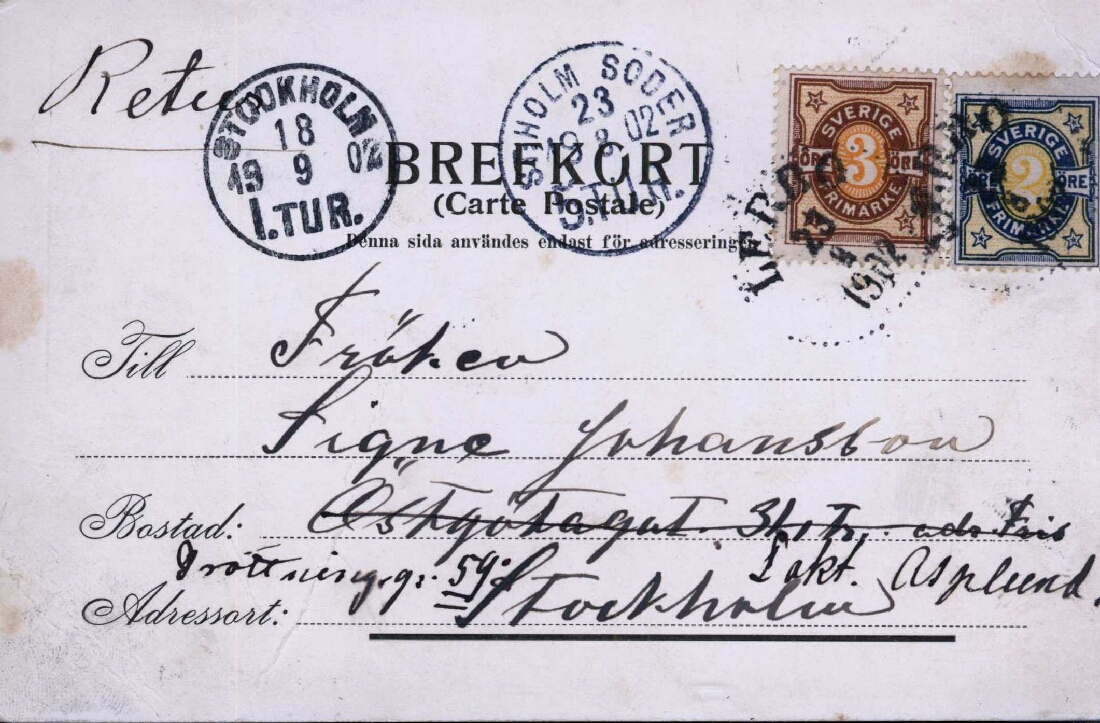 Retur
STOCKHOLM
18
19 9 02
1.TUR.
STHOLM SÖDER
23
19 8 02
5.TUR.
SVERIGE
3
ÖRE ÖRE
FRIMÄRKE
SVERIGE
2
ÖRE ÖRE
FRIMÄRKE
LERBO
23
8
1902
BREFKORT
(Carte Postale)
Denna sida användes endast för adressering
Till Fröken
Signe Johansson
Bostad: Östgötagat. 31 1 Tr. adr Fris
Drottningg: 59: I akt. Asplund.
Adressort: Stockholm